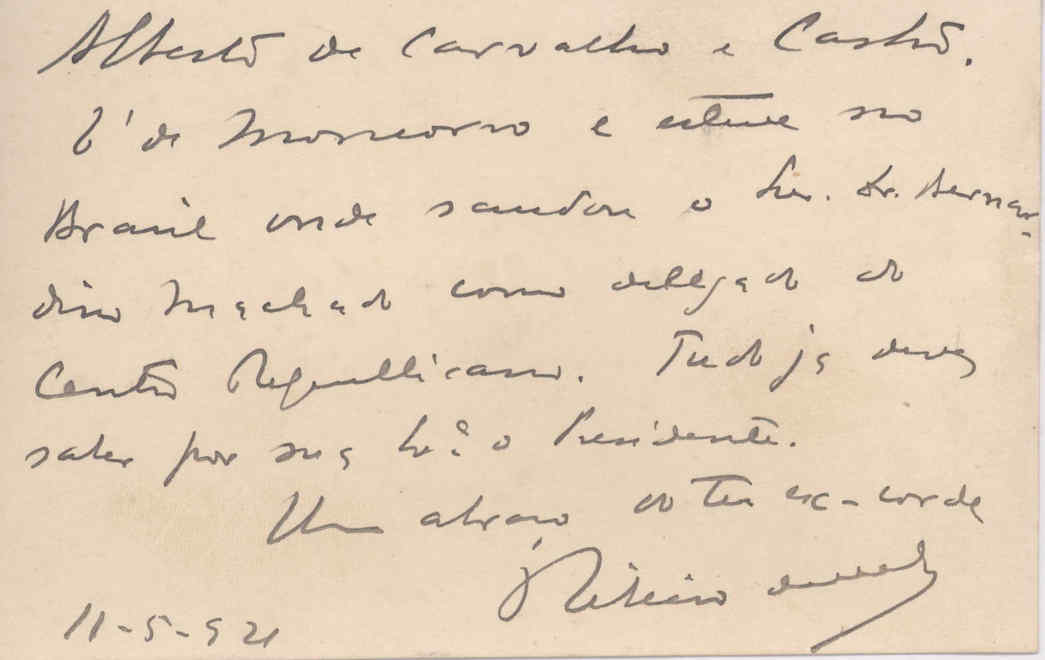 Alberto de Carvalho e Castro.
É de Moncorvo e esteve no
Brasil onde saudou o Snr. Dr. Bernar-
dino Machado como delegado do
Centro Republicano. Tudo já deves
saber por sua Exª o Presidente.
Um abraço do teu ex-corde
Ribeiro
11-5-921